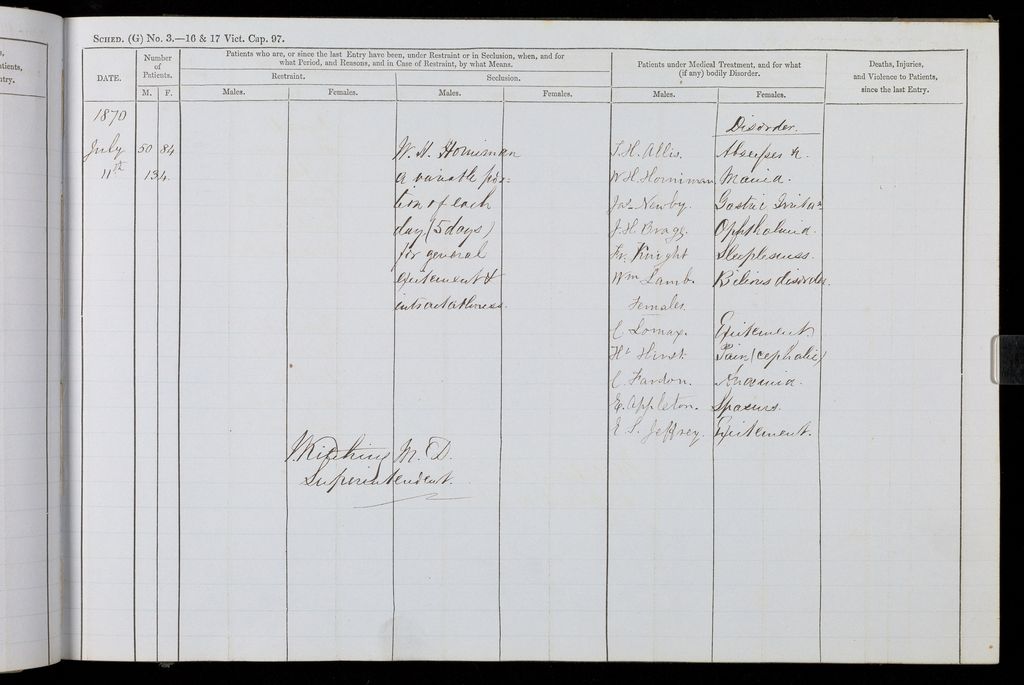 s,
atients,
ntry.
SCHED. (G) No. 3.—16 & 17 Vict. Cap. 97.
DATE.
Number of Patients.
M. F.
Patients who are, or since the last Entry have been, under Restraint or in Seclusion, when, and for
what Period, and Reasons, and in Case of Restraint, by what Means.
Restraint. Seclusion.
Males. Females. Males. Females.
Patients under Medical Treatment, and for what
(if any) bodily Disorder.
Males. Females.
Deaths, Injuries,
and Violence to Patients,
since the last Entry.
1870
Disorder.
July 50 84 W. H. Horniman T. H. Allis. Abscesses &.
11th 134. a variable por- W H Horniman Mania.
tion of each Jas. Newby. Gastric Irritan
day (5 days) J. H. Bragg. Ophthalmia.
for general Fr. Knight Sleeplessness.
excitement & Wm Lamb. Bilious disorder.
intractableness. Females.
C Lomax. Excitement.
Ht Hirst. Pain (cephalic)
C Fardon. Anaemia.
E. Appleton. Spasms.
E S. Jeffrey. Excitement.
J. Kitching M. D.
Superintendent.